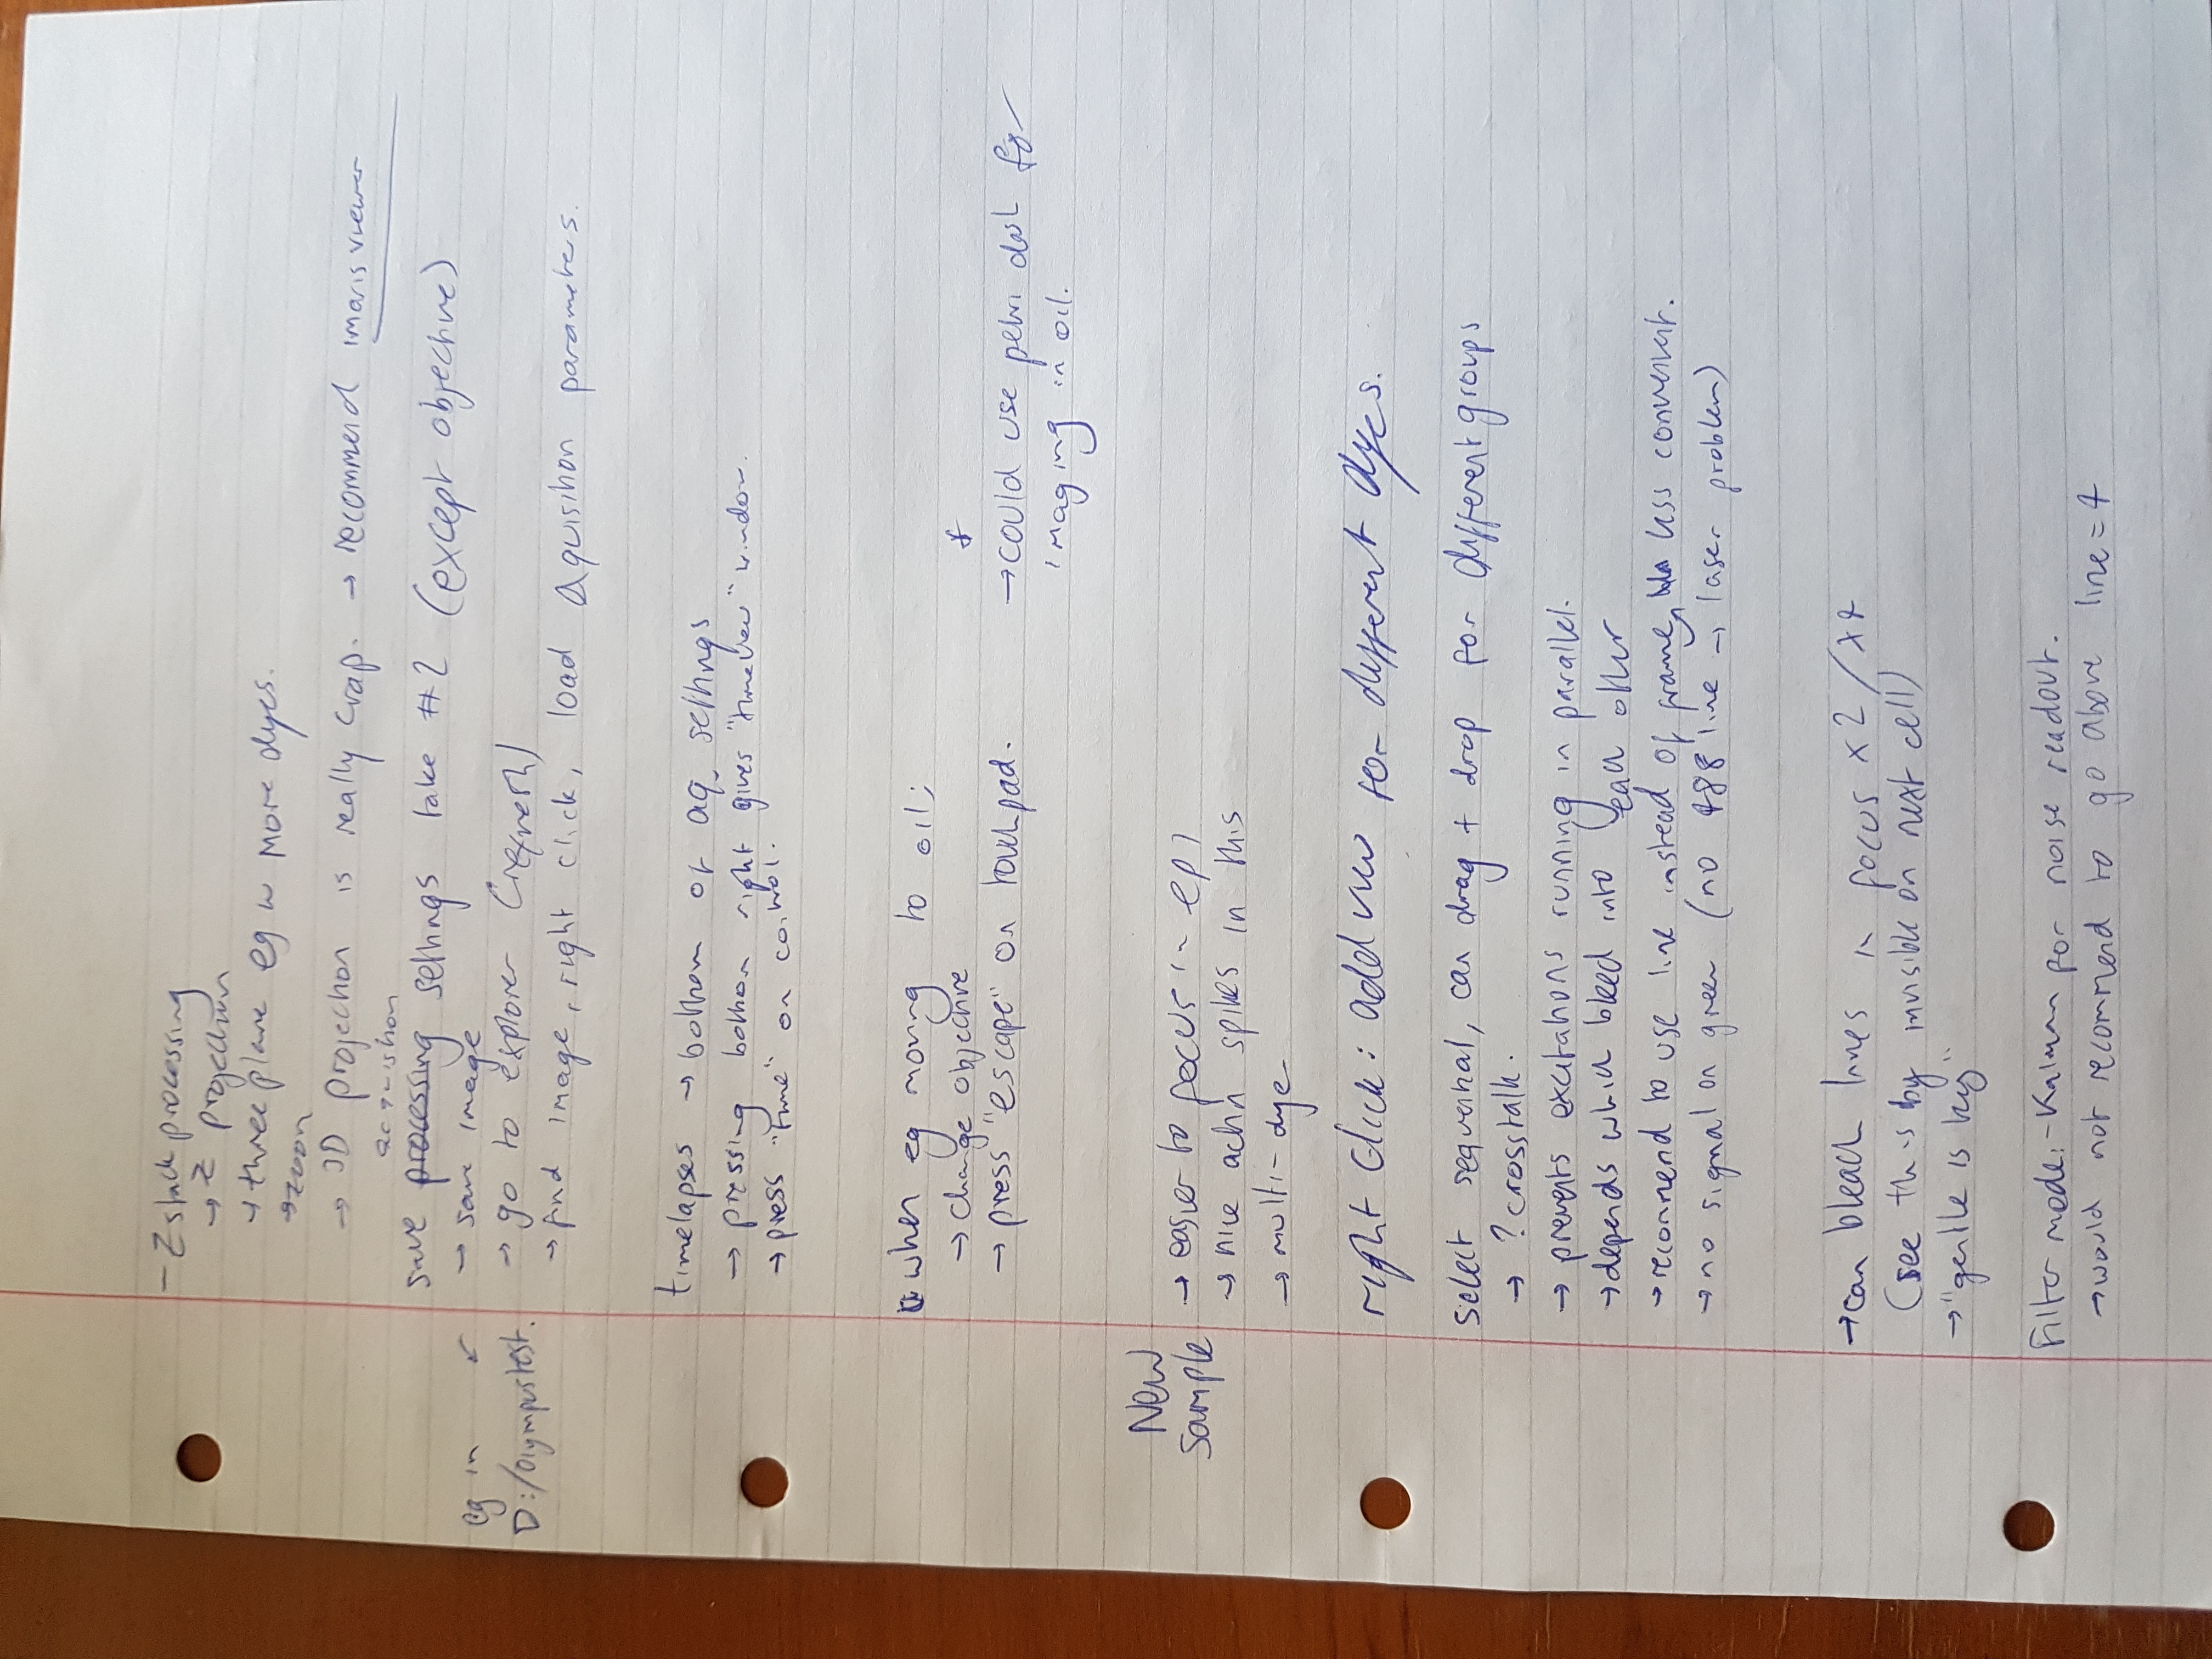 - Z stack processing
→ Z projection
→ three plane eg w more dyes.
→ zoom
→ 3D projection is really crap. → recommend imaris viewer
acquisition
save processing settings take #2 (except objective)
→ save image
eg in
D:/Olympustest.
→ go to explorer (refresh)
→ find image, right click, load aquisition parameters.
timelapses → bottom of aq. settings
→ pressing bottom right gives "timeview" window.
→ press "time" on control.
when eg moving to oil;
→ change objective
→ press "escape" on touchpad.
→ could use petri dish for
imaging in oil.
New
Sample
→ easier to focus in epi
→ nice actin spikes in this
→ multi-dye
right click: add view for different dyes.
select sequential, can drag + drop for different groups
→ ? crosstalk.
→ prevents excitations running in parallel.
→ depends which bleed into each other
→ recommend to use line instead of frame, less convenient.
→ no signal on green (no 488 line → laser problem)
→ can bleach lines in focus x2/x4
(see this by invisible on next cell)
→ "gentle is key"
Filter mode:- Kalman for noise readout.
→ would not recommend to go above line = 4